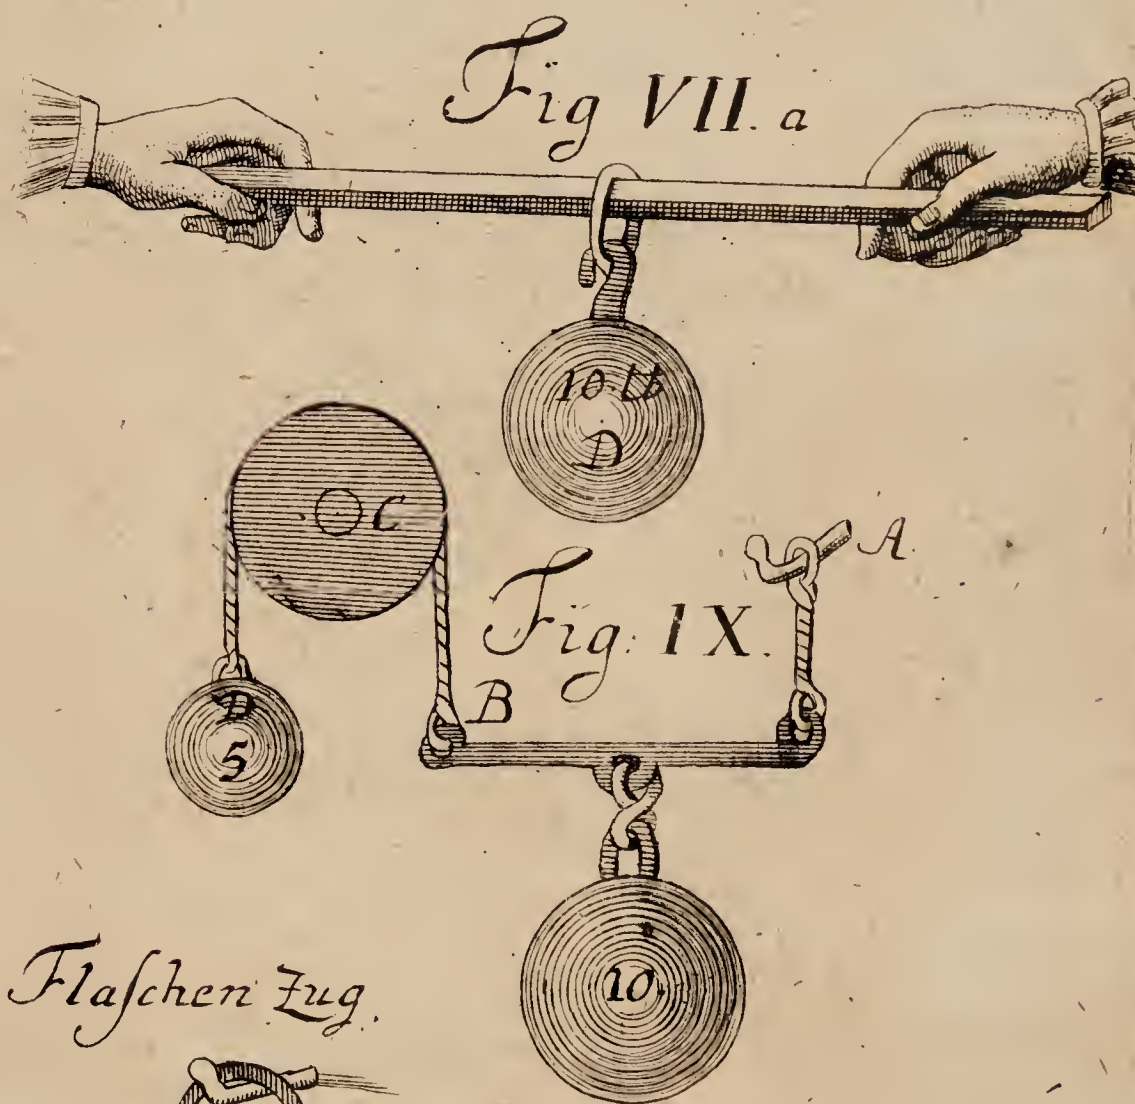 Fig VII. a
10 ℔
D
C
A.
Fig. IX.
B
D
5
10.
Flaſchen Zug.